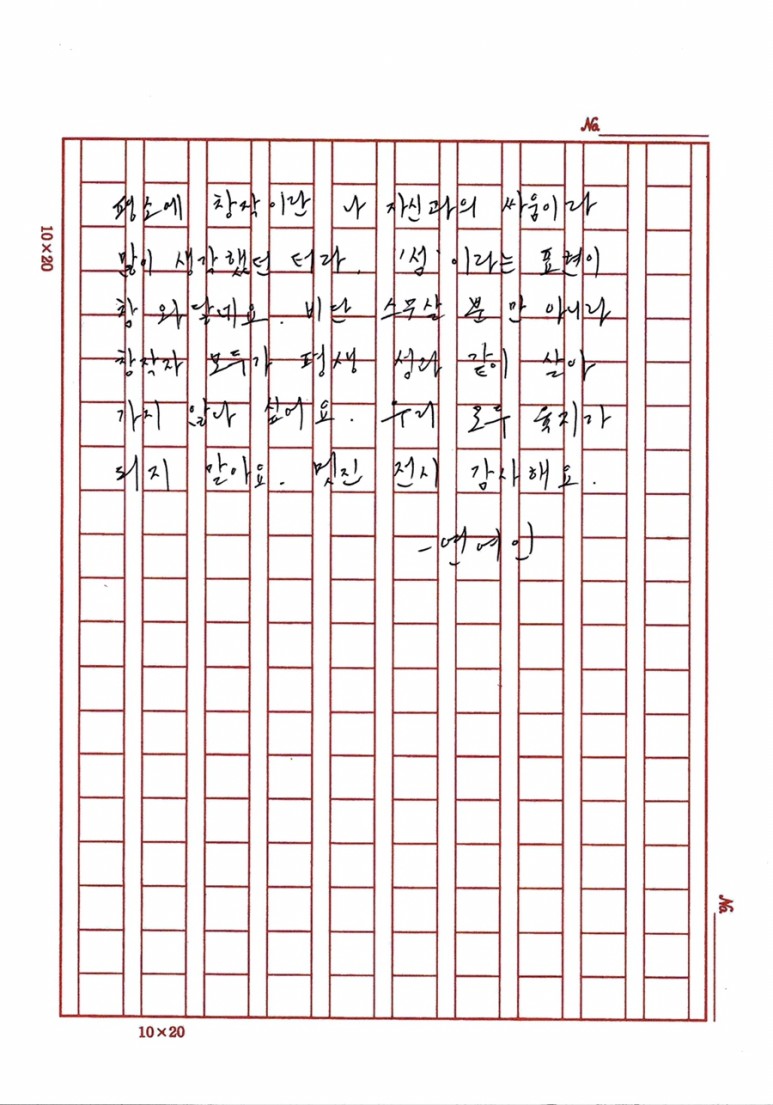 No.
10×20
평소에 창작이란 나 자신과의 싸움이라
많이 생각했던 터라, '섬'이라는 표현이
참 와닿네요. 비단 스무살 뿐 만 아니라
창작자 모두가 평생 섬과 같이 살아
가지 않나 싶어요. 우리 모두 육지가
되지 말아요. 멋진 전시 감사해요.
- 연예인
No.
10×20